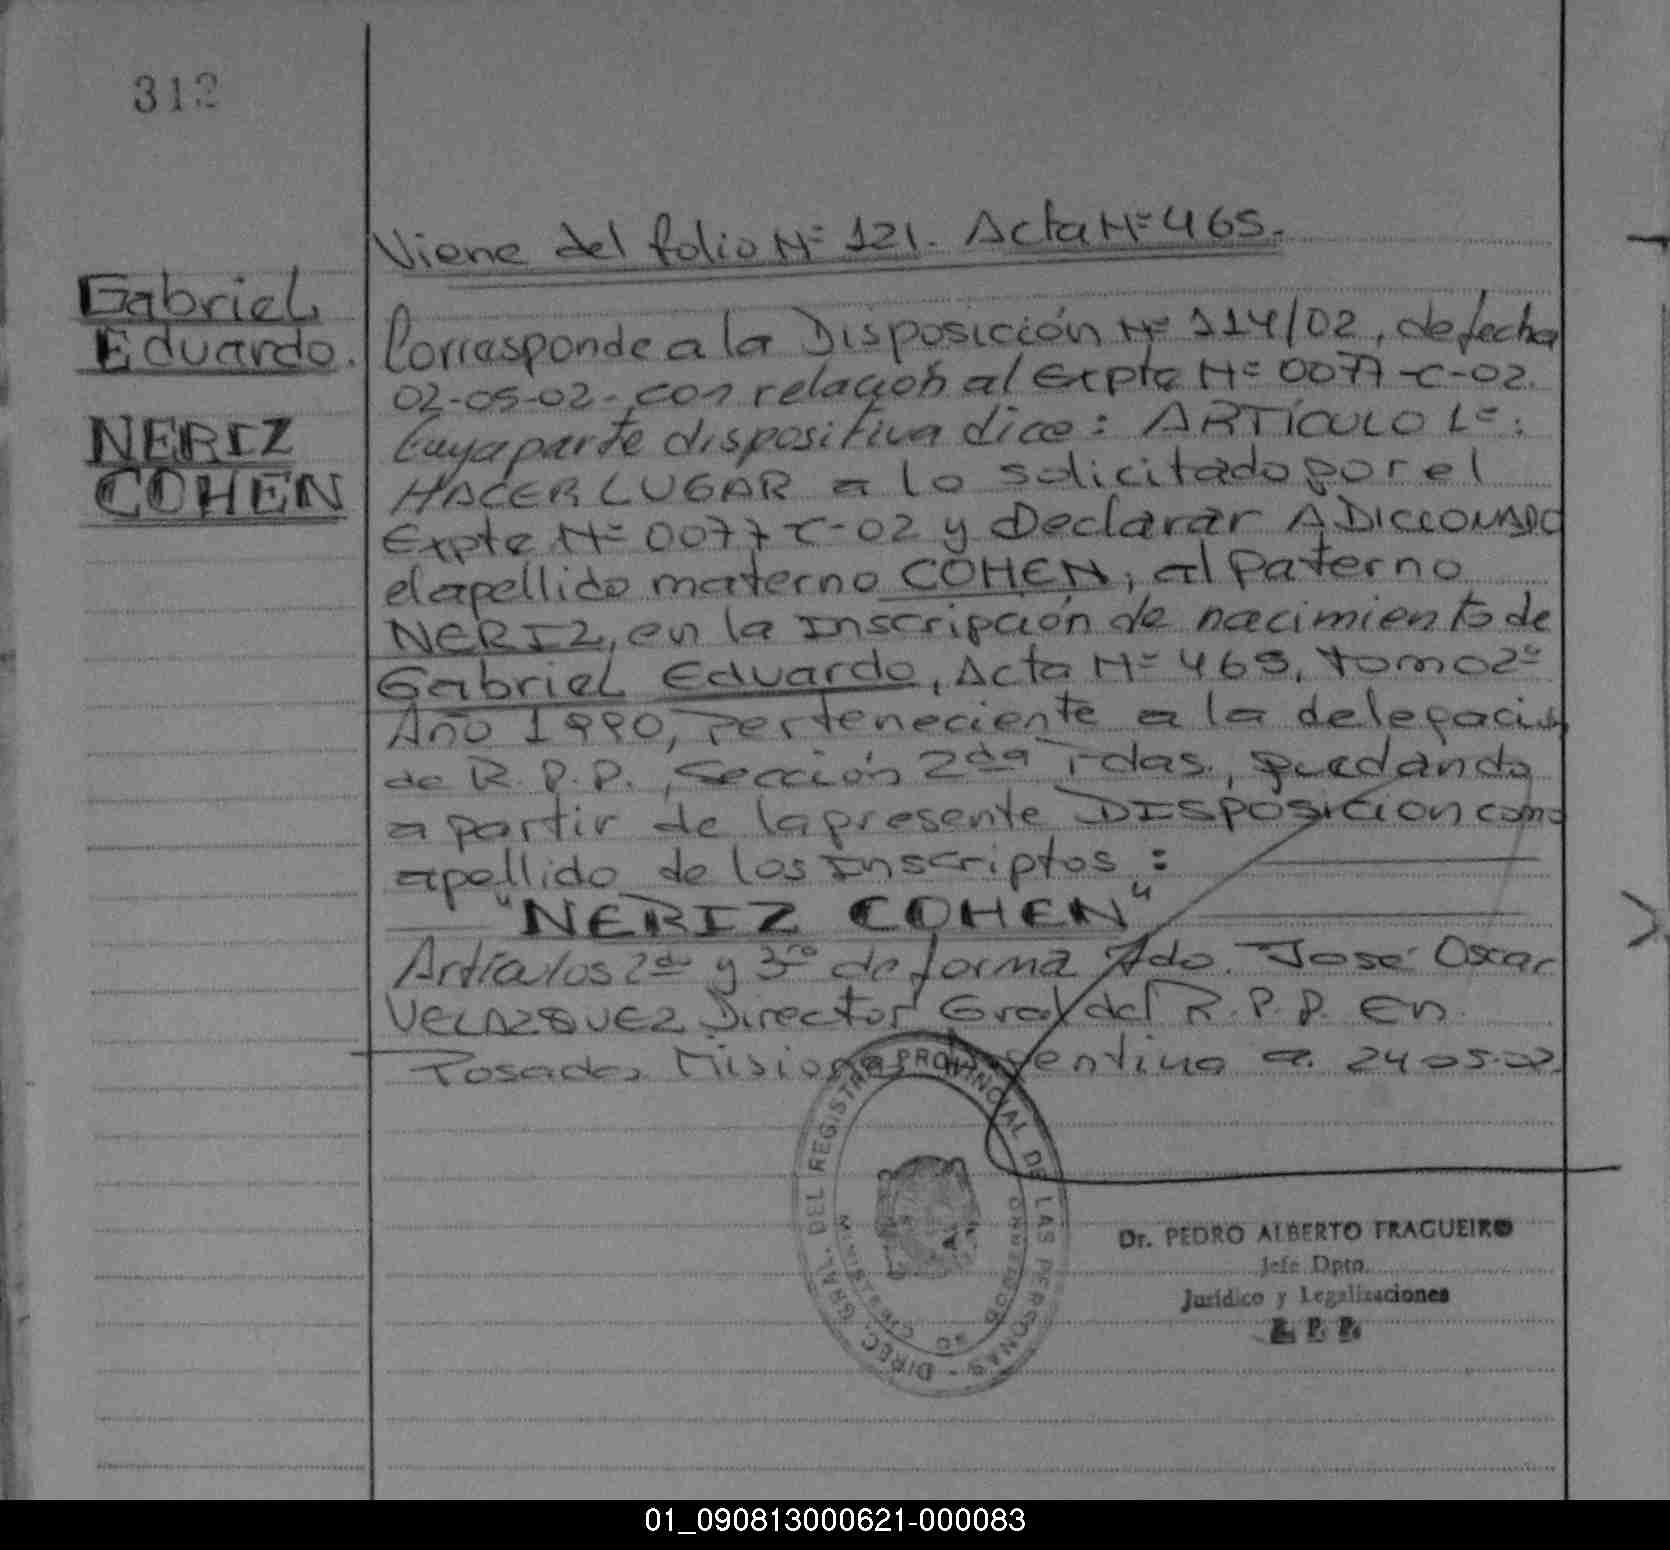 312
Viene del folio Nº 121. Acta Nº 465.
Gabriel
Eduardo.
NERIZ
COHEN
Corresponde a la Disposición Nº 114/02, de fecha
02-05-02-, con relación al Expte Nº 0077-C-02.
Cuya parte dispositiva dice: ARTÍCULO 1º:
HACER LUGAR a lo solicitado por el
Expte Nº 0077 C-02 y Declarar ADICCIONADO
el apellido materno COHEN, al Paterno
NERIZ, en la Inscripción de nacimiento de
Gabriel Eduardo, Acta Nº 465, tomo 2º
Año 1990, Perteneciente a la delegación
de R.P.P., Sección 2da Pdas., quedando
a partir de la presente DISPOSICION como
apellido de los Inscriptos:
"NERIZ COHEN"
Artículos 2do y 3ro de forma Fdo. José Oscar
VELAZQUEZ Director Gral del R.P.P. En
Posadas Misiones Argentina a 24 05-02.
DIREC. GRAL. DEL REGISTRO PROVINCIAL DE LAS PERSONAS
Dr. PEDRO ALBERTO FRAGUEIRO
Jefe Dpto.
Jurídico y Legalizaciones
R. P. P.
01_090813000621-000083